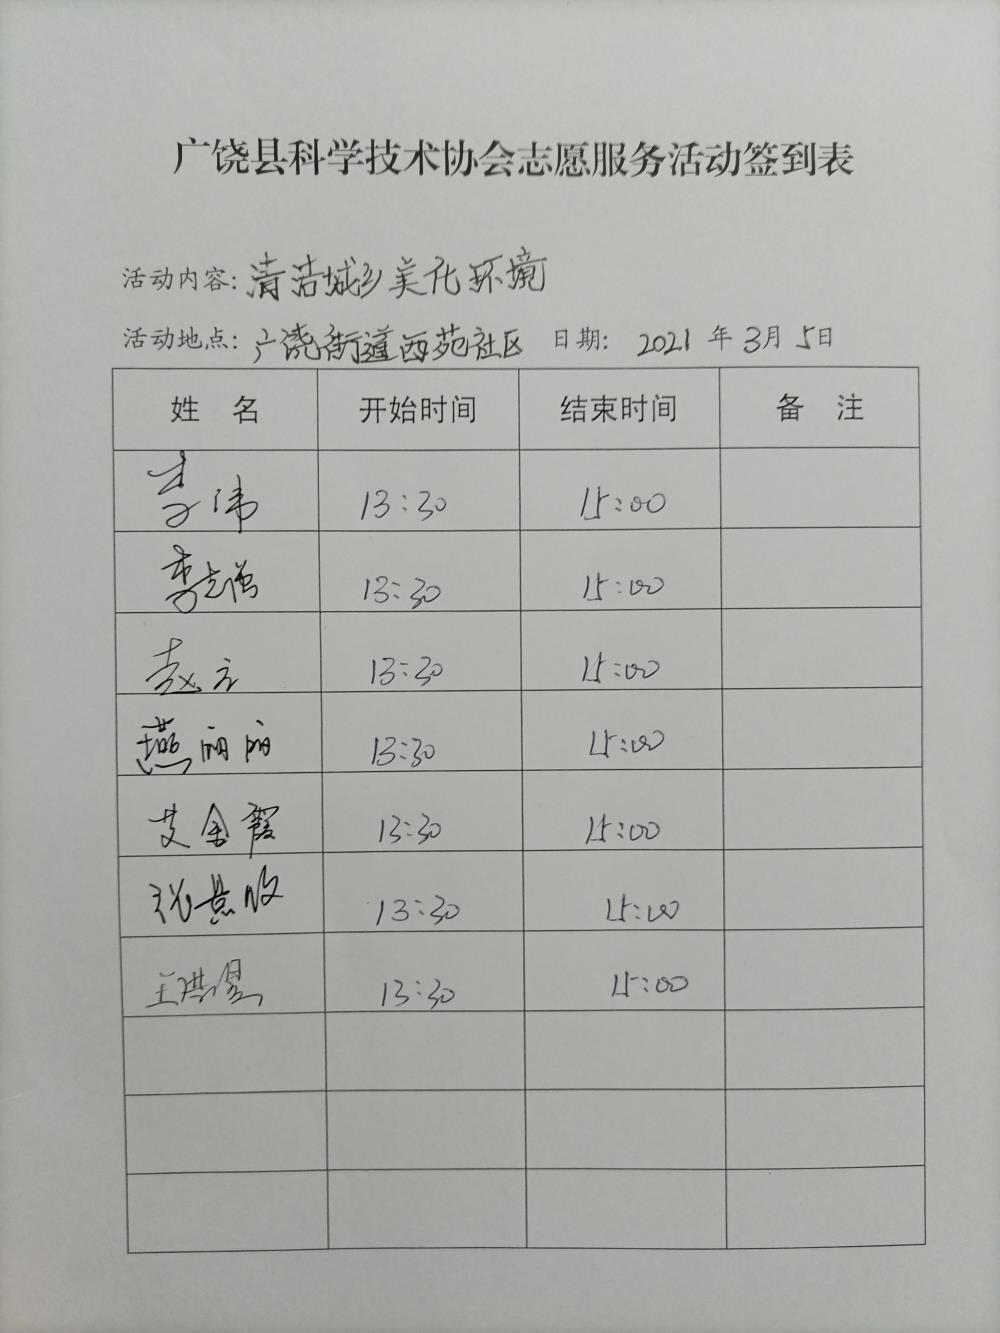 广饶县科学技术协会志愿服务活动签到表
活动内容: 清洁城乡美化环境
活动地点: 广饶街道西苑社区 日期: 2021 年 3月 5日
姓 名 开始时间 结束时间 备 注
李伟 13:30 15:00
李志强 13:30 15:00
赵 13:30 15:00
燕丽丽 13:30 15:00
艾金霞 13:30 15:00
张景 13:30 15:00
王洪 13:30 15:00